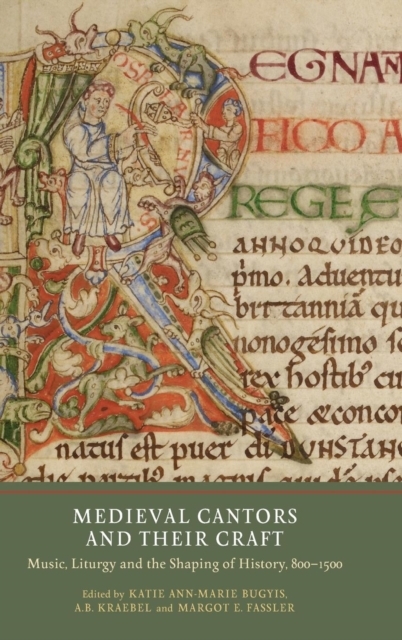 EGNAN
FICO A
REGE E
ANNO QVIDEO
pmo. Aduentu
brittanniā qu
nonogesimo se
rex hostib; cu
pace & concor
natus est puer di DUNSTANO
MEDIEVAL CANTORS
AND THEIR CRAFT
Music, Liturgy and the Shaping of History, 800–1500
Edited by KATIE ANN-MARIE BUGYIS,
A.B. KRAEBEL and MARGOT E. FASSLER